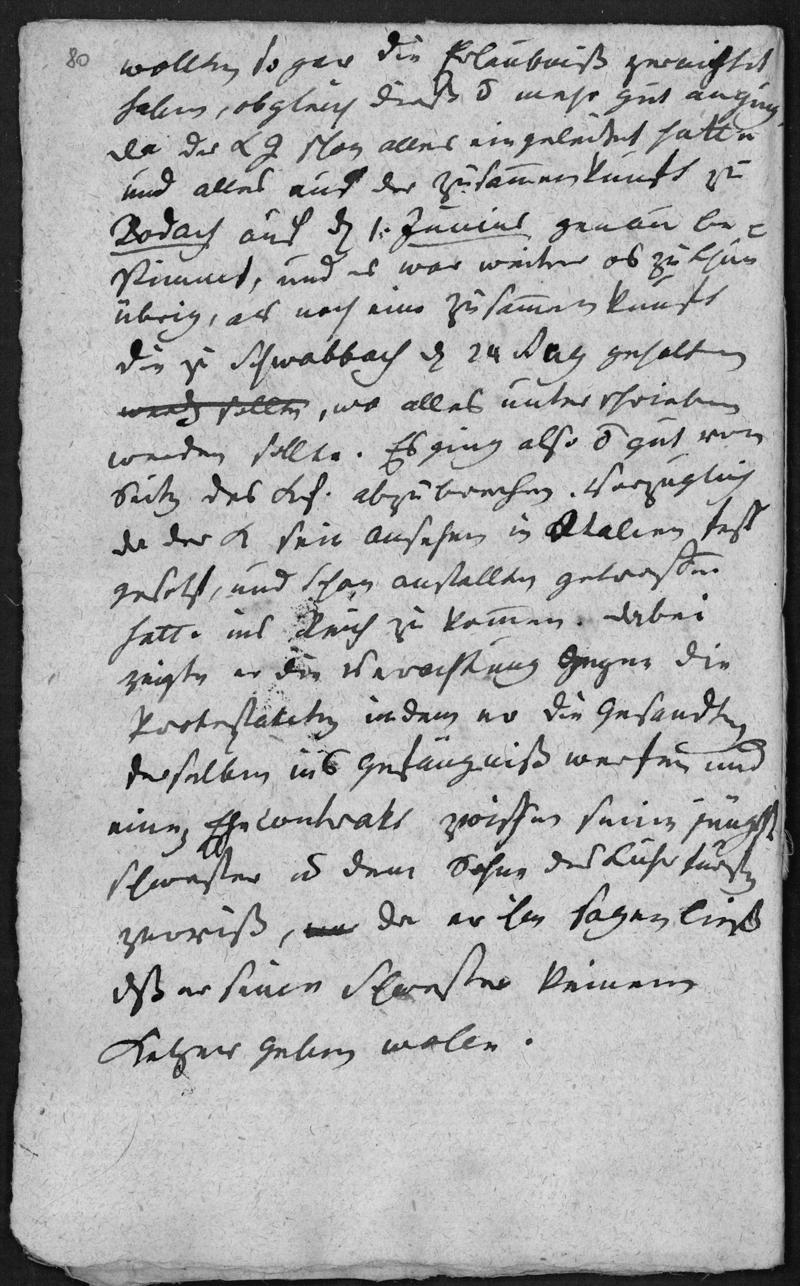 80
wollten so gar die Erlaubniß zernichtet
haben, obgleich dieß mehr gut anging,
da der LG schon alles eingeleitet hatte
und alles auf der Zusammenkunft zu
Rodach auf d 1. Junius genau be=
stimmt, und es war weiter zu thun
übrig, als noch eine Zusammenkunft
die zu Schwabbach d 24 Aug gehalten
werd sollte, wo alles unterschrieben
werden sollte. Es ging also gut von
Seite des abzubrechen. Vorzüglich
da der K sein Ansehen in Italien fest
gesetzt, und schon anstalten getroffen
hatte ins Reich zu kommen. dabei
zeigte er die Verachtung gegen die
Protestanten indem er die Gesandten
derselben ins Gefängniß werfen und
einen Ehecontrakt zwischen seiner jüngste
schwester u dem Sohne des Kuhrfürsten
zerriß, da er ihm sagen ließ
dß er seine schwester keinem
Ketzer geben wolle.